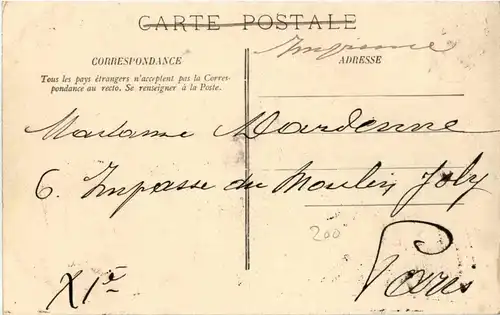 CARTE POSTALE
Imprimé
CORRESPONDANCE
Tous les pays étrangers n'acceptent pas la Corres-
pondance au recto. Se renseigner à la Poste.
ADRESSE
Madame Dardenne
6. Impasse du Moulin Joly
200
Paris
XIe